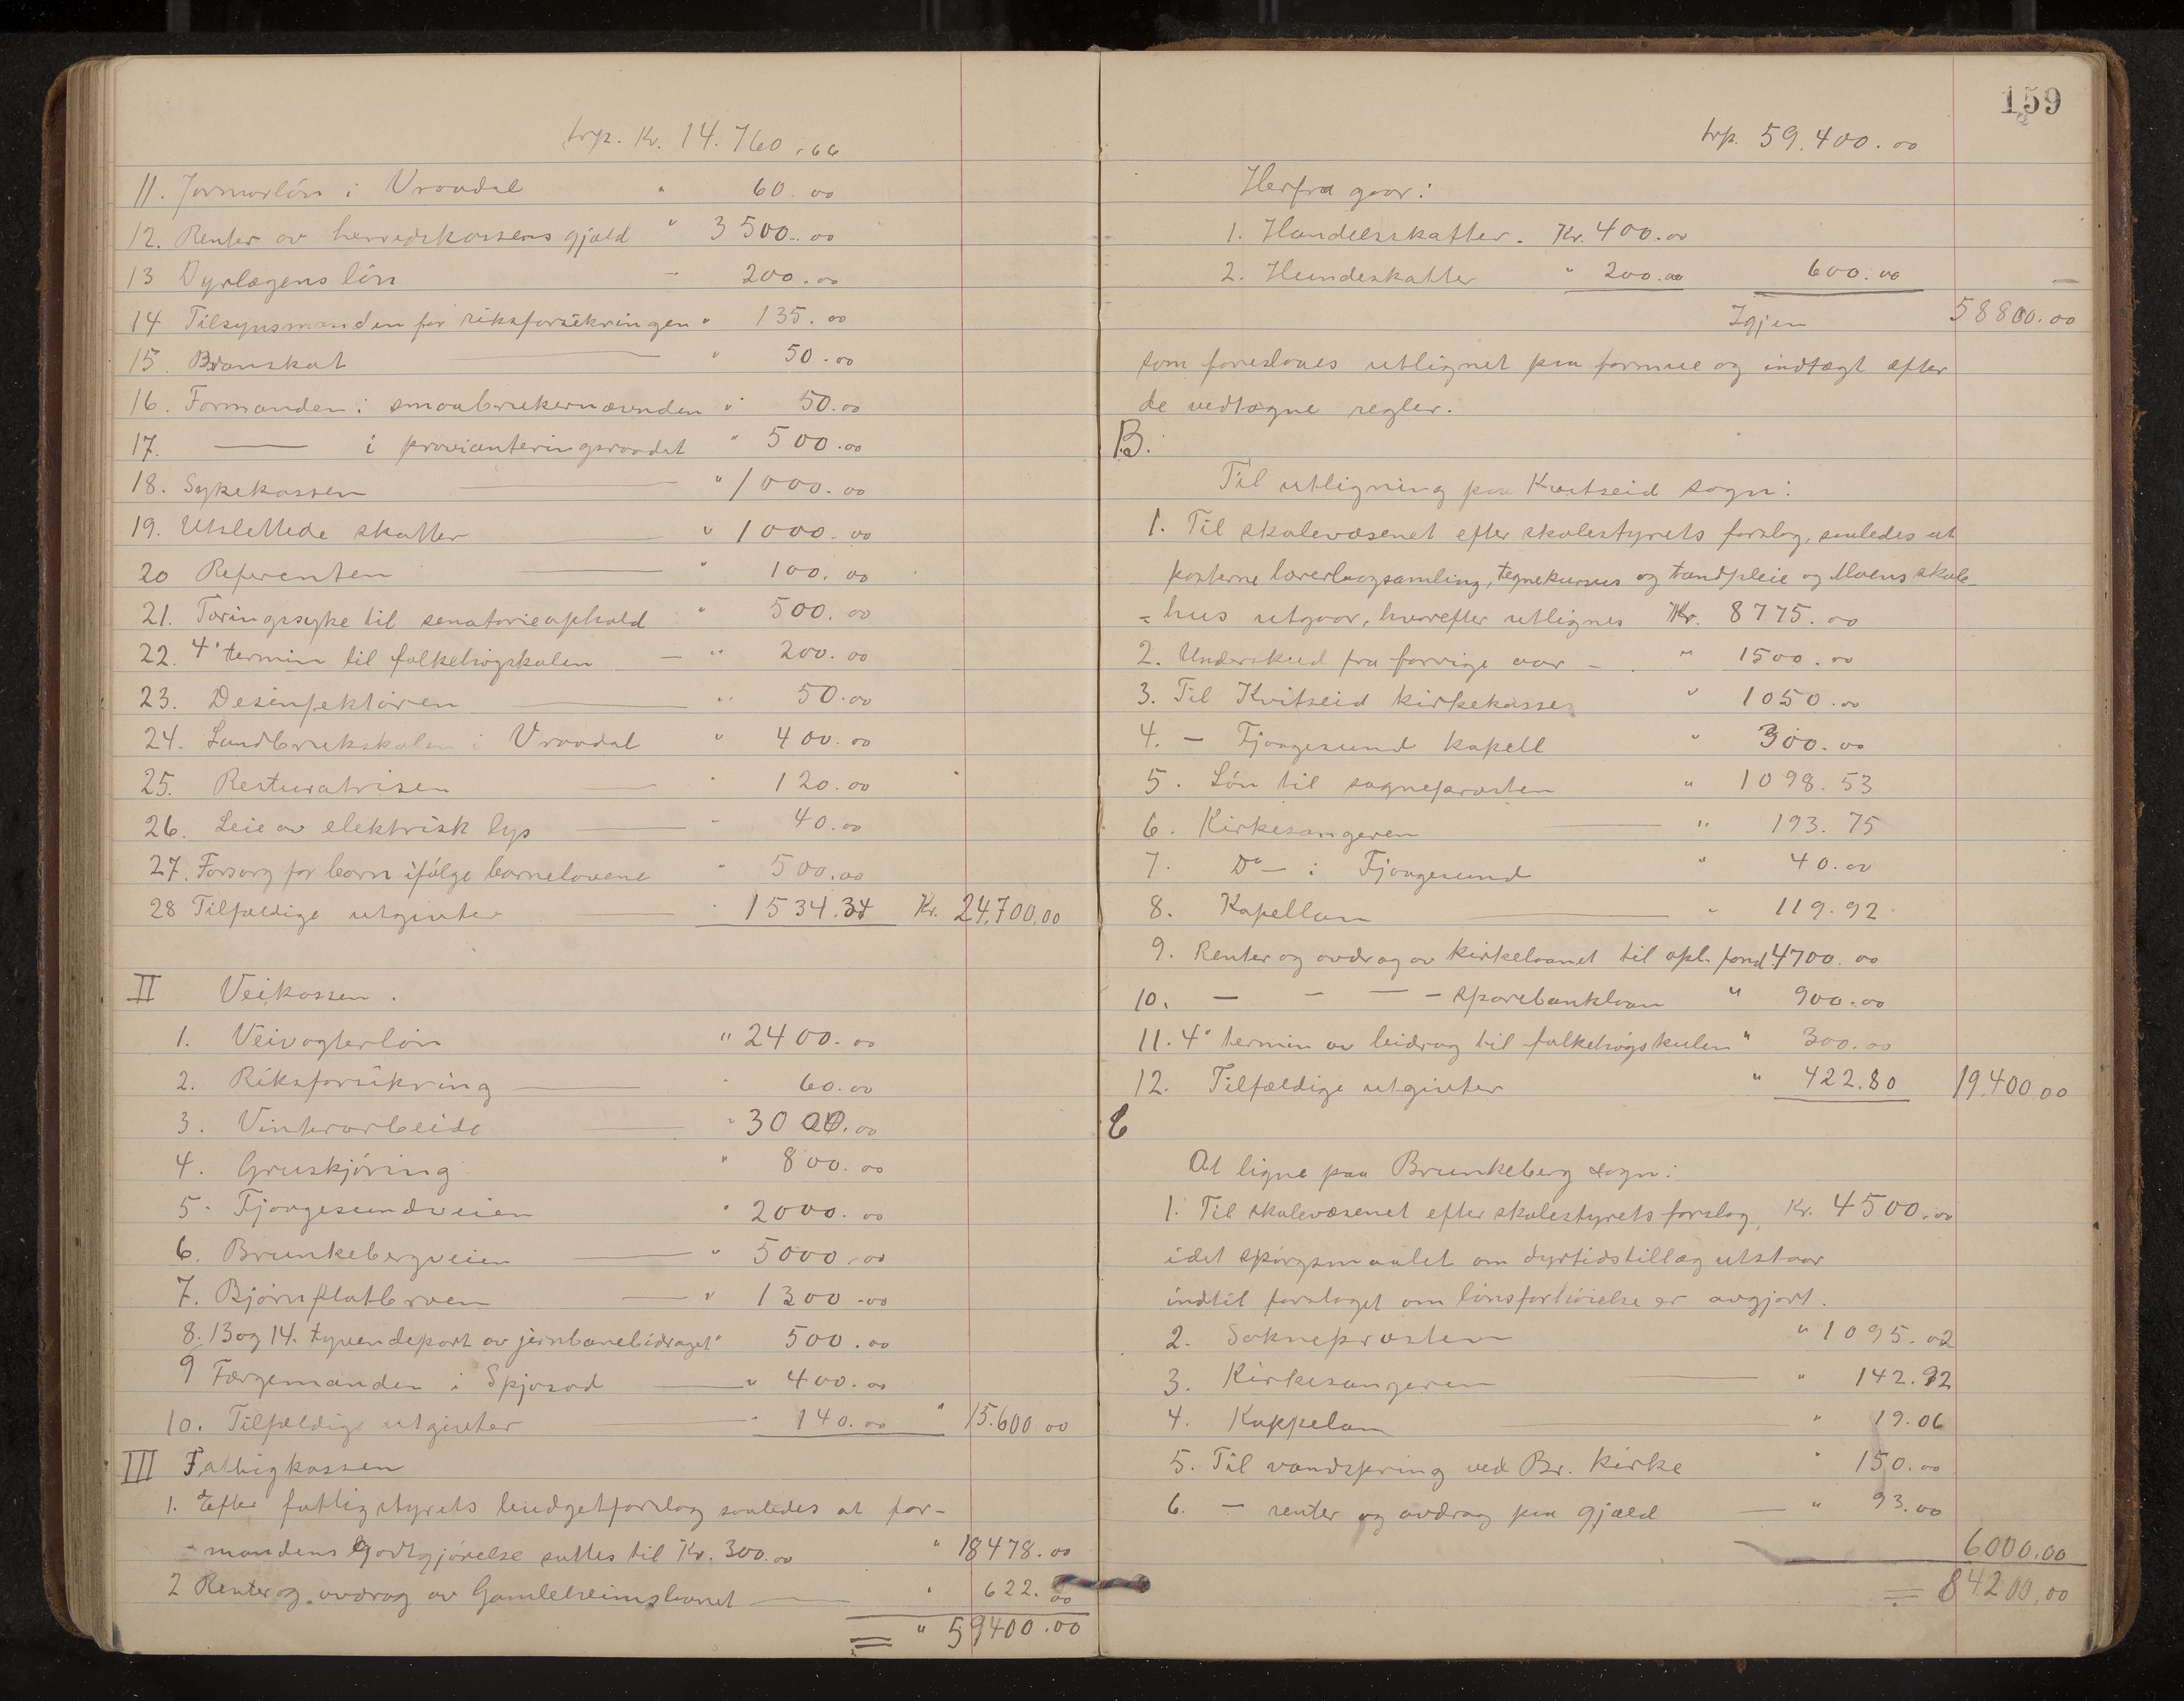 trp. Kr. 14.760.66
11. Jormorløn i Vraadal " 60.00
12. Renter av herredskassens gjæld " 3500.00
13 Dyrlægens løn - 200.00
14 Tilsynsmanden for riksforsikringen " 135.00
15. Branskat " 50.00
16. Formanden i smaabrukernævnden " 50.00
17. — i provianteringsraadet " 500.00
18. Sykekassen " 1000.00
19. Utslettede skatter " 1000.00
20 Referenten " 100.00
21. Tæringssyke til senatorieophold " 500.00
22. 4' termin til folkehøgskulen — " 200.00
23. Desinfektøren " 50.00
24. Landbrukskolen i Vraadal " 400.00
25. Resturatrisen " 120.00
26. Leie av elektrisk lys - 40.00
27. Forsorg for barn ifølge barnelovene " 500.00
28 Tilfældige utgivter " 1534.34 Kr. 24.700.00
II Veikassen.
1. Veivogterløn " 2400.00
2. Riksforsikring " 60.00
3. Vinterarbeide " 3000.00
4. Gruskjøring " 800.00
5. Fjaagesundveien " 2000.00
6. Brunkebergveien " 5000.00
7. Bjørnflatbroen " 1300.00
8. 13 og 14. tyvendepart av jernbanebidraget " 500.00
9 Færgemanden i Spjosod " 400.00
10. Tilfældige utgivter " 140.00 " 15.600.00
III Fattigkassen
1. Efter fattigstyrets budgetforslag saaledes at for-
-mandens godtgjørelse sættes til Kr. 300.00 " 18478.00
2 Renter og avdrag av Gamleheimslaanet — " 622.00
= " 59400.00
159
trp. 59.400.00
Herfra gaar:
1. Handelsskatter. Kr. 400.00
2. Hundeskatter " 200.00 600.00 —
Igjen 58800.00
som foreslaaes utlignet paa formue og indtægt efter
de vedtagne regler.
B.
Til utligning paa Kvitseid sogn:
1. Til skolevæsenet efter skolestyrets forslag, saaledes at
posterne lærerlaagsamling, tegnekursus og tandpleie og Moens skole-
=hus utgaar, hvorefter utlignes Kr. 8775.00
2. Underskud fra forrige aar - " 1500.00
3. Til Kvitseid kirkekasse " 1050.00
4. — Fjaagesund kapell " 300.00
5. Løn til sogneprasten " 1098.53
6. Kirkesangeren " 193.75
7. Do — i Fjaagesund " 40.00
8. Kapellan " 119.92
9. Renter og avdrag av kirkelaanet til opl. fond 4700.00
10. — — — - sparebanklaan " 900.00
11. 4' termin av bidrag til folkehøgskulen " 300.00
12. Tilfældige utgivter " 422.80 19.400.00
C
At ligne paa Brunkeberg sogn:
1. Til skolevæsenet efter skolestyrets forslag, Kr. 4500.00
idet spørgsmaalet om dyrtidstillæg utstaar
indtil forslaget om lønsforhøielse er avgjort.
2. Sokneprasten " 1095.02
3. Kirkesangeren " 142.92
4. Kappelan " 19.06
5. Til vandspring ved Br. kirke " 150.00
6. — renter og avdrag paa gjæld — " 93.00
6000.00
= 84200.00